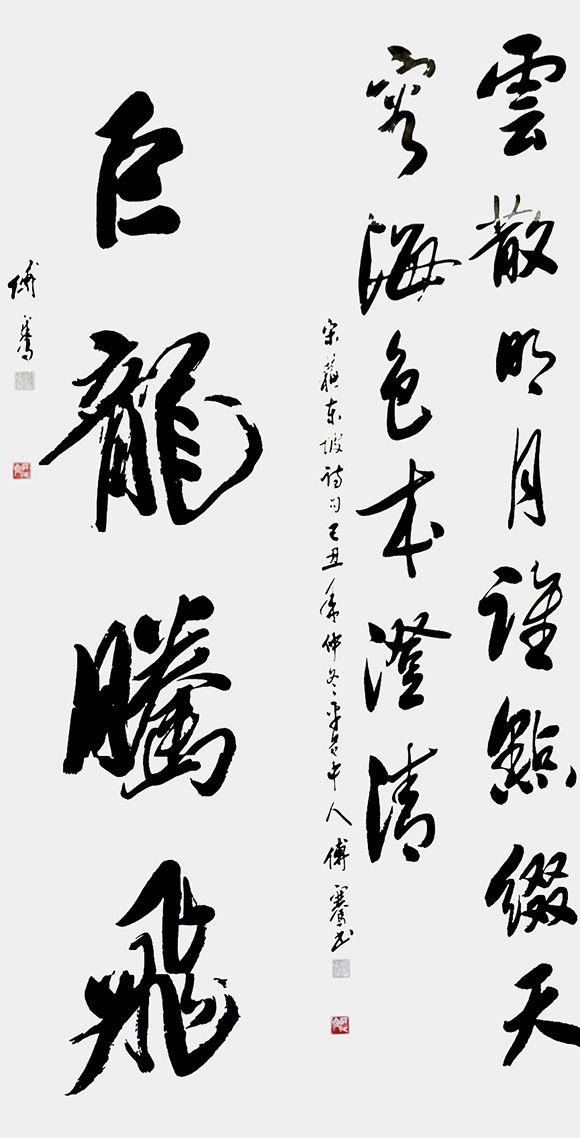 雲散明月誰點綴天
容海色本澄清
宋蘇东坡诗句己丑年仲冬中人傅騫书
巨龍騰飛
傅騫